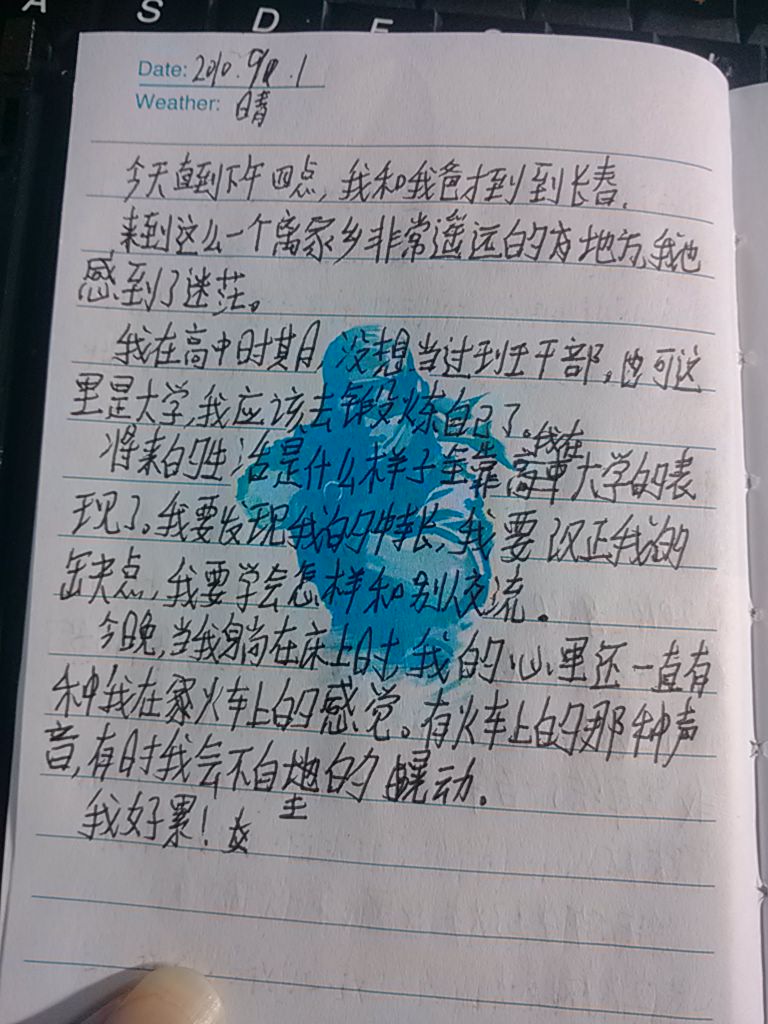 A S D F
Date: 2010.9.1
Weather: 晴
今天直到下午四点,我和我爸才到到长春.
来到这么一个离家乡非常遥远的方地方,我也
感到了迷茫。
我在高中时期,没想当过班干部,但可这
里是大学,我应该去锻炼自己了。
将来的生活是什么样子全靠我在大学的表
现了。我要发现我的特长,我要改正我的
缺点,我要学会怎样和别人交流。
今晚,当我躺在床上时,我的心里还一直有
种我在火车上的感觉。有火车上的那种声
音,有时我会不自主地的晃动。
我好累!